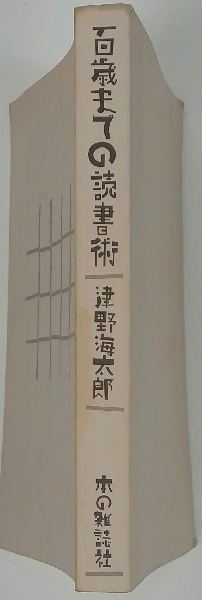 百歳までの読書術
津野海太郎
本の雑誌社